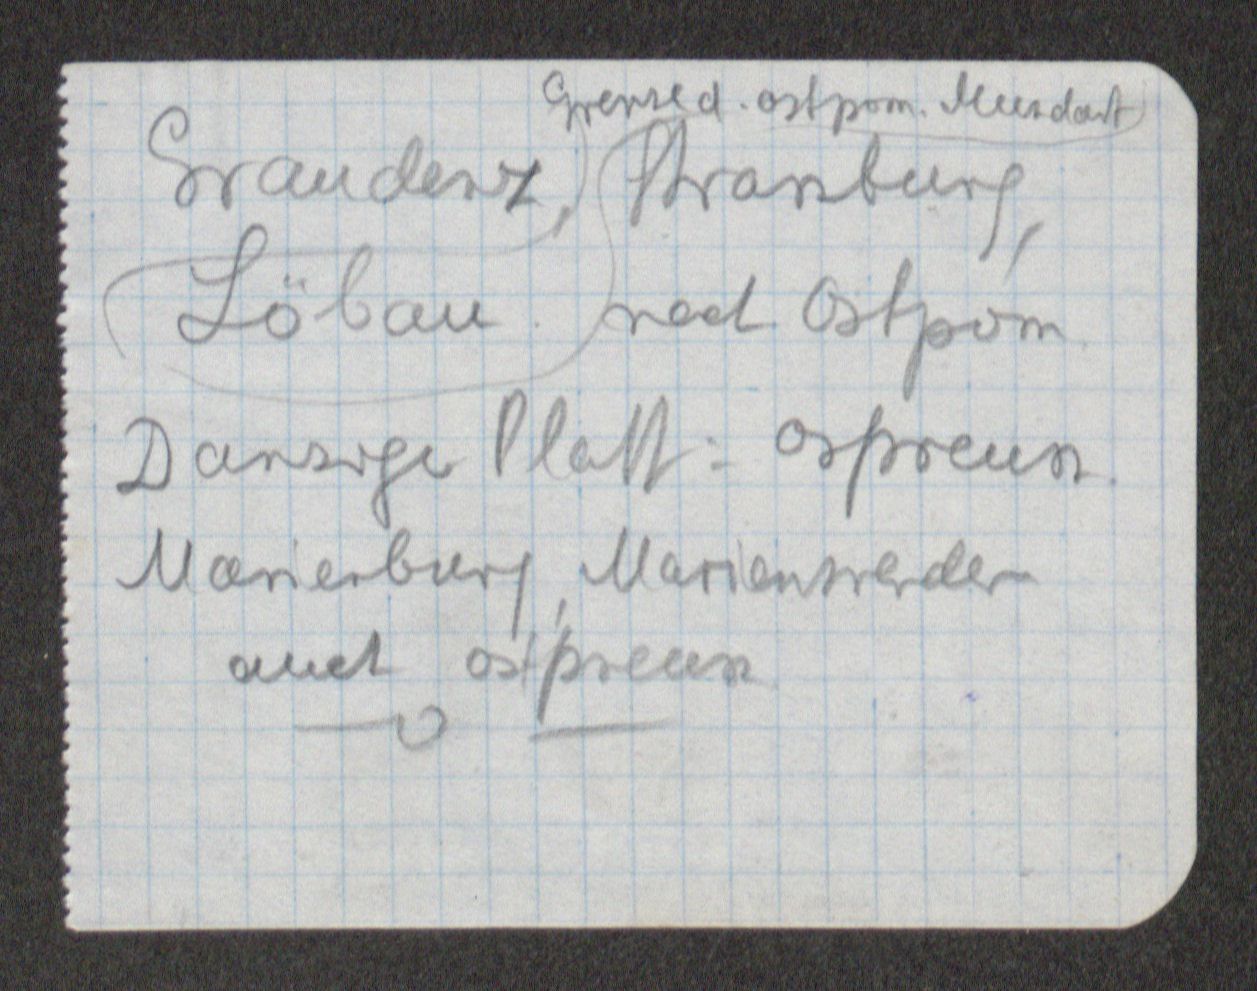 Grenze d. ostpom. Mundart
Graudenz, Strasburg,
Löbau noch Ostpom.
Danziger Platt: ostpreuss.
Marienburg, Marienwerder
auch ostpreuss